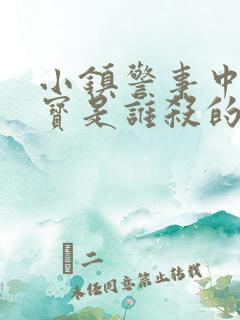 小鎮警事中
寶是誰殺的
二
未任同意禁止转载